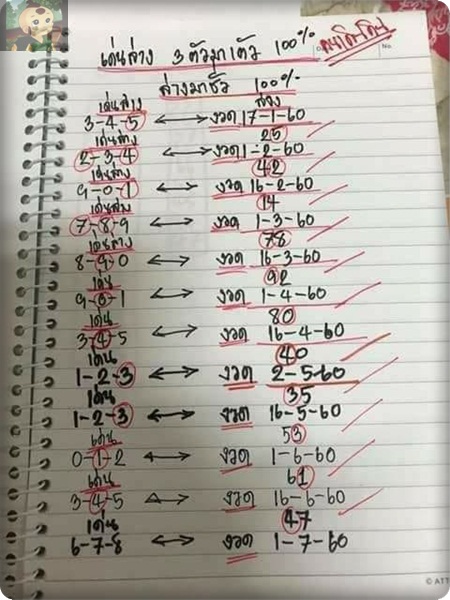 เด่นล่าง 3 ตัวมาตัว 100%
No.
ล่างมาชัว 100%
เด่นล่าง ล่าง
3-4-5 ⟷ งวด 17-1-60
เด่นล่าง 25
2-3-4 ⟷ งวด 1-2-60
เด่นล่าง 42
9-0-1 ⟷ งวด 16-2-60
เด่นล่าง 14
7-8-9 ⟷ งวด 1-3-60
เด่นล่าง 78
8-9-0 ⟷ งวด 16-3-60
เด่น 92
9-0-1 ⟷ งวด 1-4-60
เด่น 80
3-4-5 ⟷ งวด 16-4-60
เด่น 40
1-2-3 ⟷ งวด 2-5-60
เด่น 35
1-2-3 ⟷ งวด 16-5-60
เด่น 53
0-1-2 ⟷ งวด 1-6-60
เด่น 61
3-4-5 ⟷ งวด 16-6-60
เด่น 47
6-7-8 ⟷ งวด 1-7-60